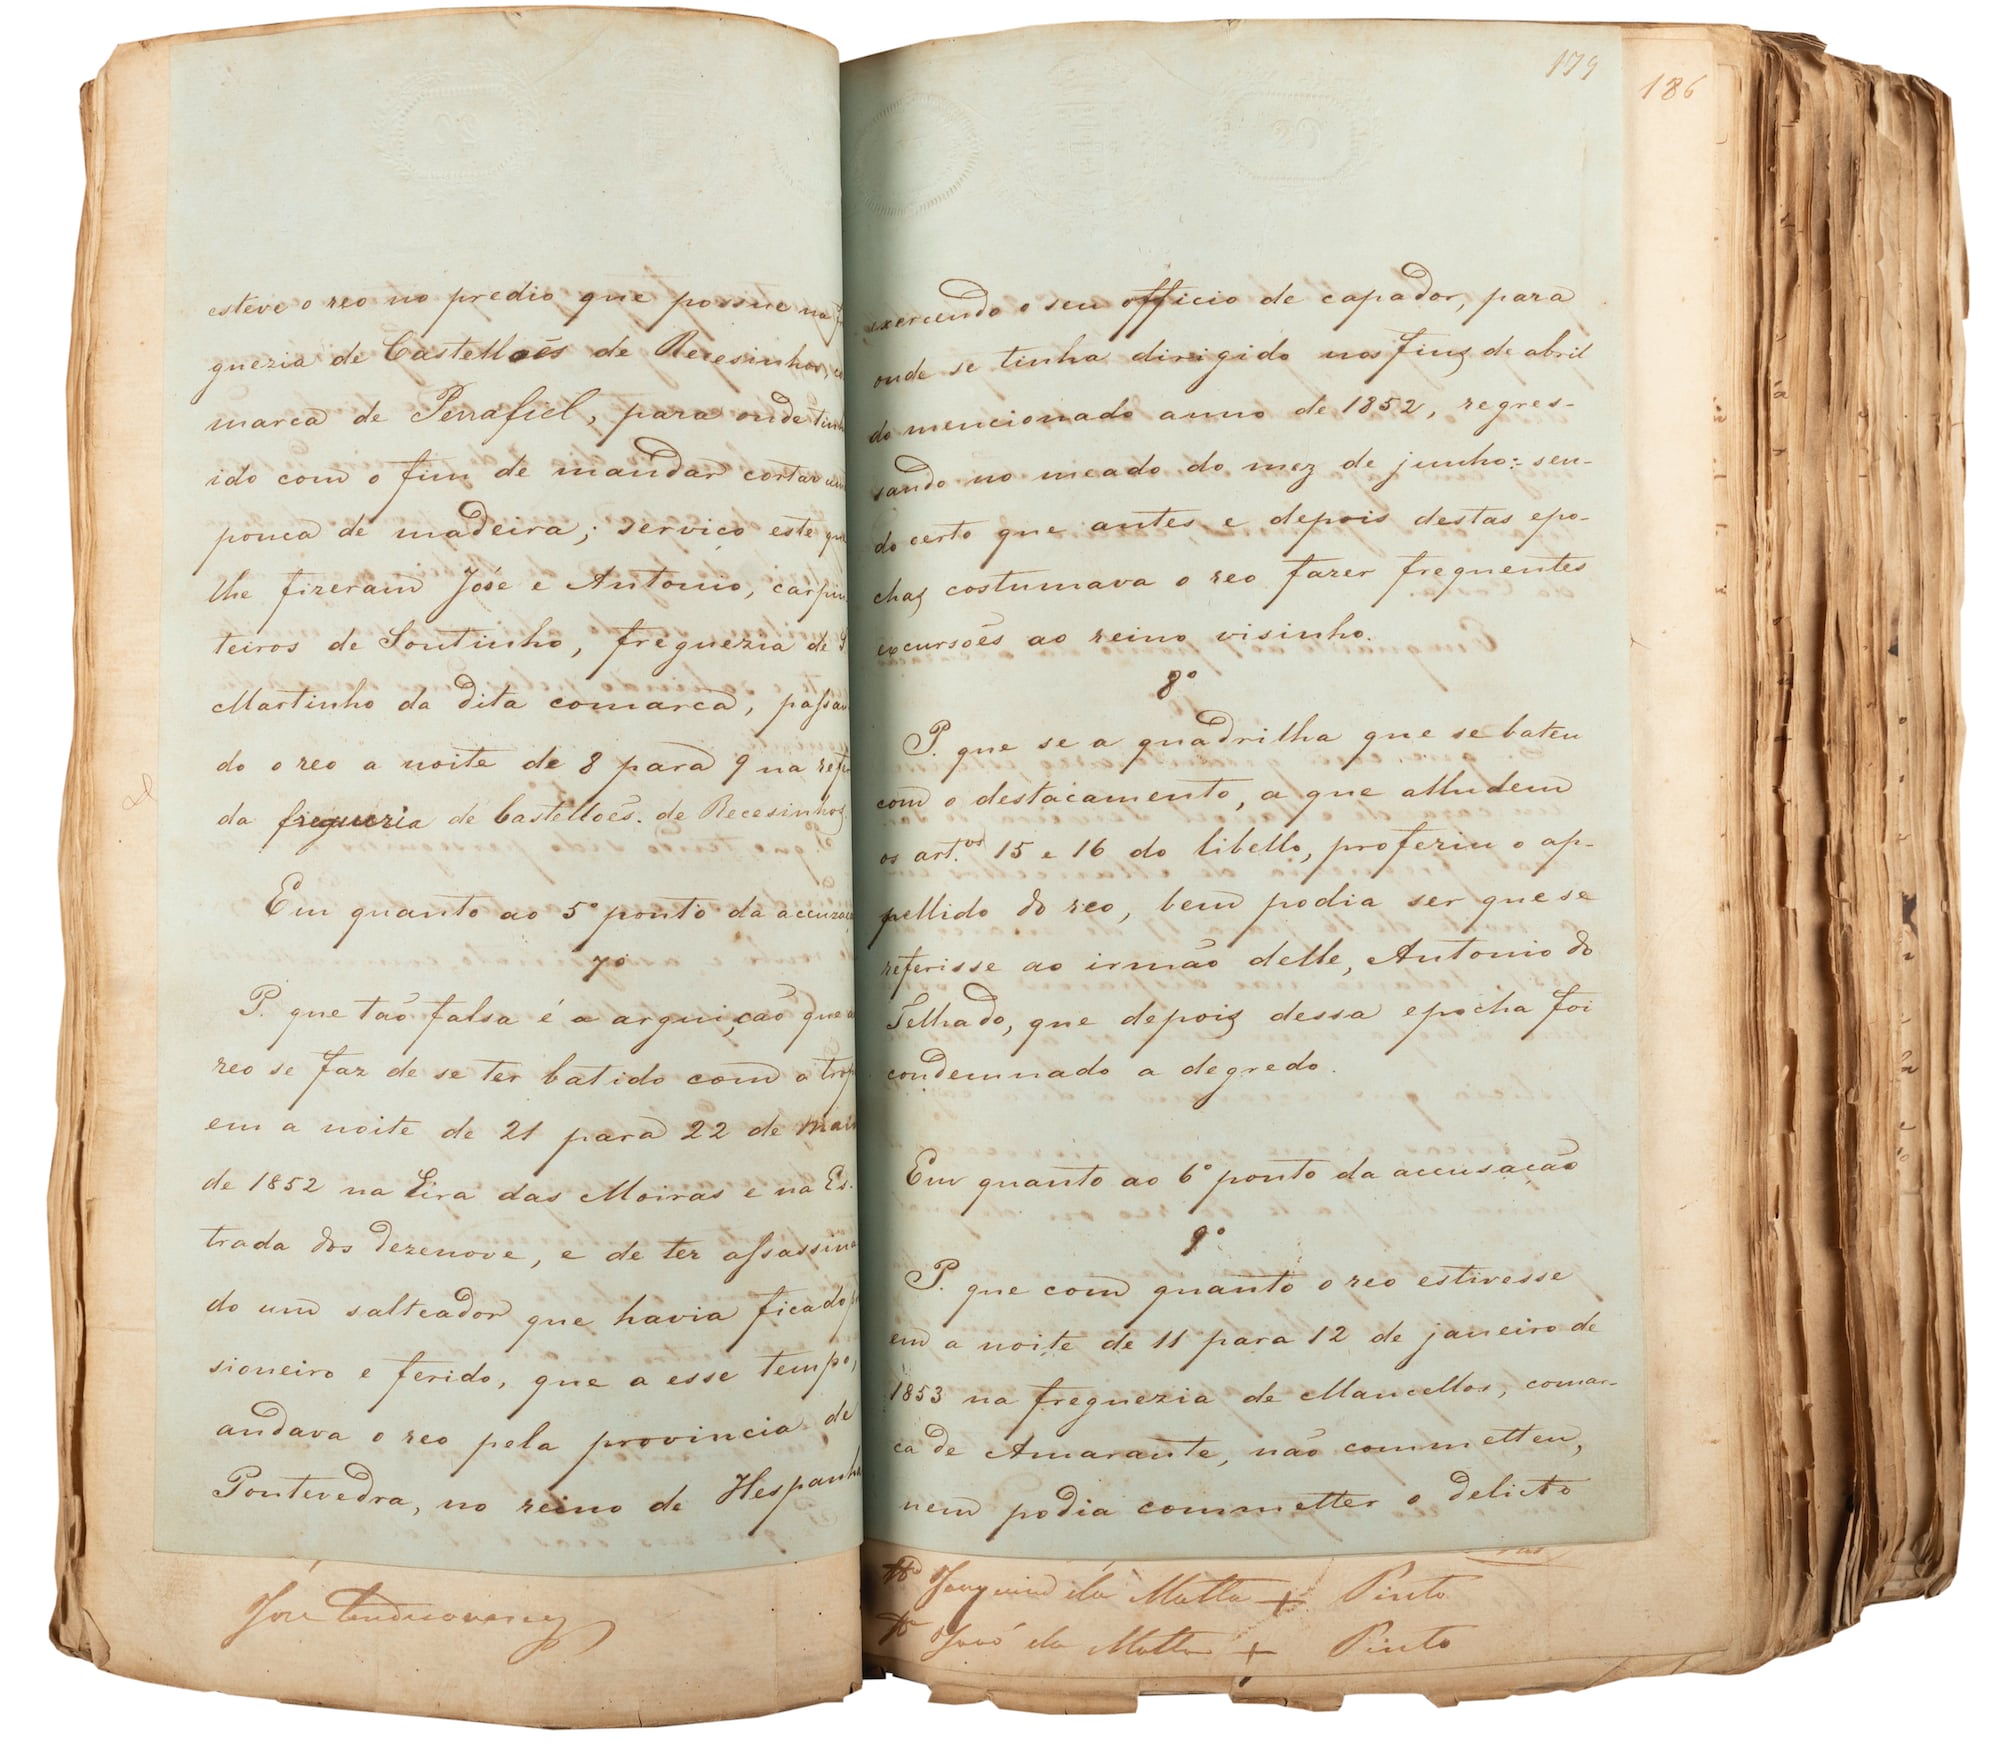 esteve o reo no predio que possue na fre
guezia de Castellões de Recesinhos, co
marca de Penafiel, para onde tinh
ido com o fim de mandar cortar um
pouca de madeira; serviço este que
lhe fizeram José e Antonio, carpin
teiros de Soutinho, freguezia de S
Martinho da dita comarca, passan
do o reo a noite de 8 para 9 na refe
da freguezia de Castellões de Recesinhos.
Em quanto ao 5º ponto da accuzaçã
7º
P. que tão falsa é a arguição que ao
reo se faz de se ter batido com a trop
em a noite de 21 para 22 de Maio
de 1852 na Eira das Moiras e na Es-
trada dos Dezenove, e de ter assassina
do um salteador que havia ficado p
sioneiro e ferido, que a esse tempo,
andava o reo pela provincia de
Pontevedra, no reino de Hespanha
José
179
186
exercendo o seu officio de capador, para
onde se tinha dirigido nos fins de abril
do mencionado anno de 1852, regres-
sando no meado do mez de junho:- sen-
do certo que antes e depois destas epo-
chas costumava o reo fazer frequentes
excursões ao reino visinho.
8º
P. que se a quadrilha que se bateu
com o destacamento, a que alludem
os art.os 15 e 16 do libello, proferiu o ap-
pellido do reo, bem podia ser que se
referisse ao irmão delle, Antonio do
Telhado, que depois dessa epocha foi
condemnado a degredo.
Em quanto ao 6º ponto da accusação
9º
P. que com quanto o reo estivesse
em a noite de 11 para 12 de janeiro de
1853 na freguezia de Mancellos, comar-
ca de Amarante, não commetteu,
nem podia commetter o delicto
Joaquim da Motta + Pinto
José da Motta + Pinto